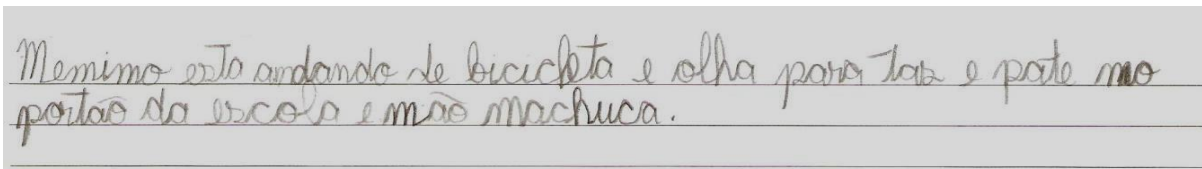 Memimo esta andando de bicicleta e olha para tas e pate mo
portão da escola e mão machuca.